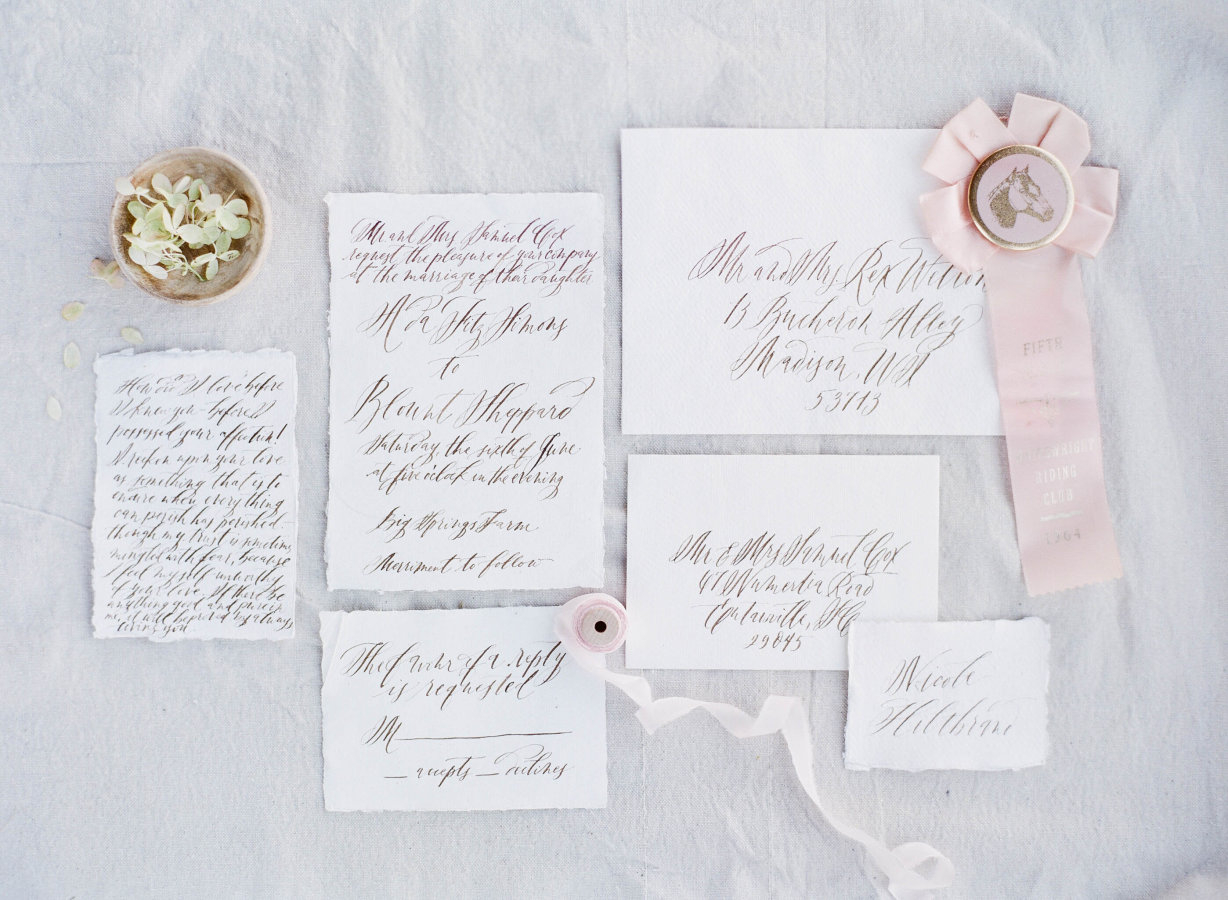 How did I love before
I knew you – before I
possessed your affection!
I reckon upon your love
as something that is to
endure when everything
can perish has perished–
though my trust is sometimes
mingled with fear, because
I feel myself unworthy
of your love. If there be
anything good and pure in
me, it will be proved by always
loving you
Mr and Mrs Samuel Cox
request the pleasure of your company
at the marriage of their daughter
Fitz Simons
to
Blount Sheppard
Saturday, the sixth of June
at five o'clock in the evening
Big Springs Farm
Merriment to follow
The favour of a reply
is requested
M
accepts declines
Mr and Mrs Rex Wilson
13 Bucheron Alley
Madison, WI
53713
Mr & Mrs Samuel Cox
Road
29845
Nicole
FIFTH
RIDING
CLUB
1964